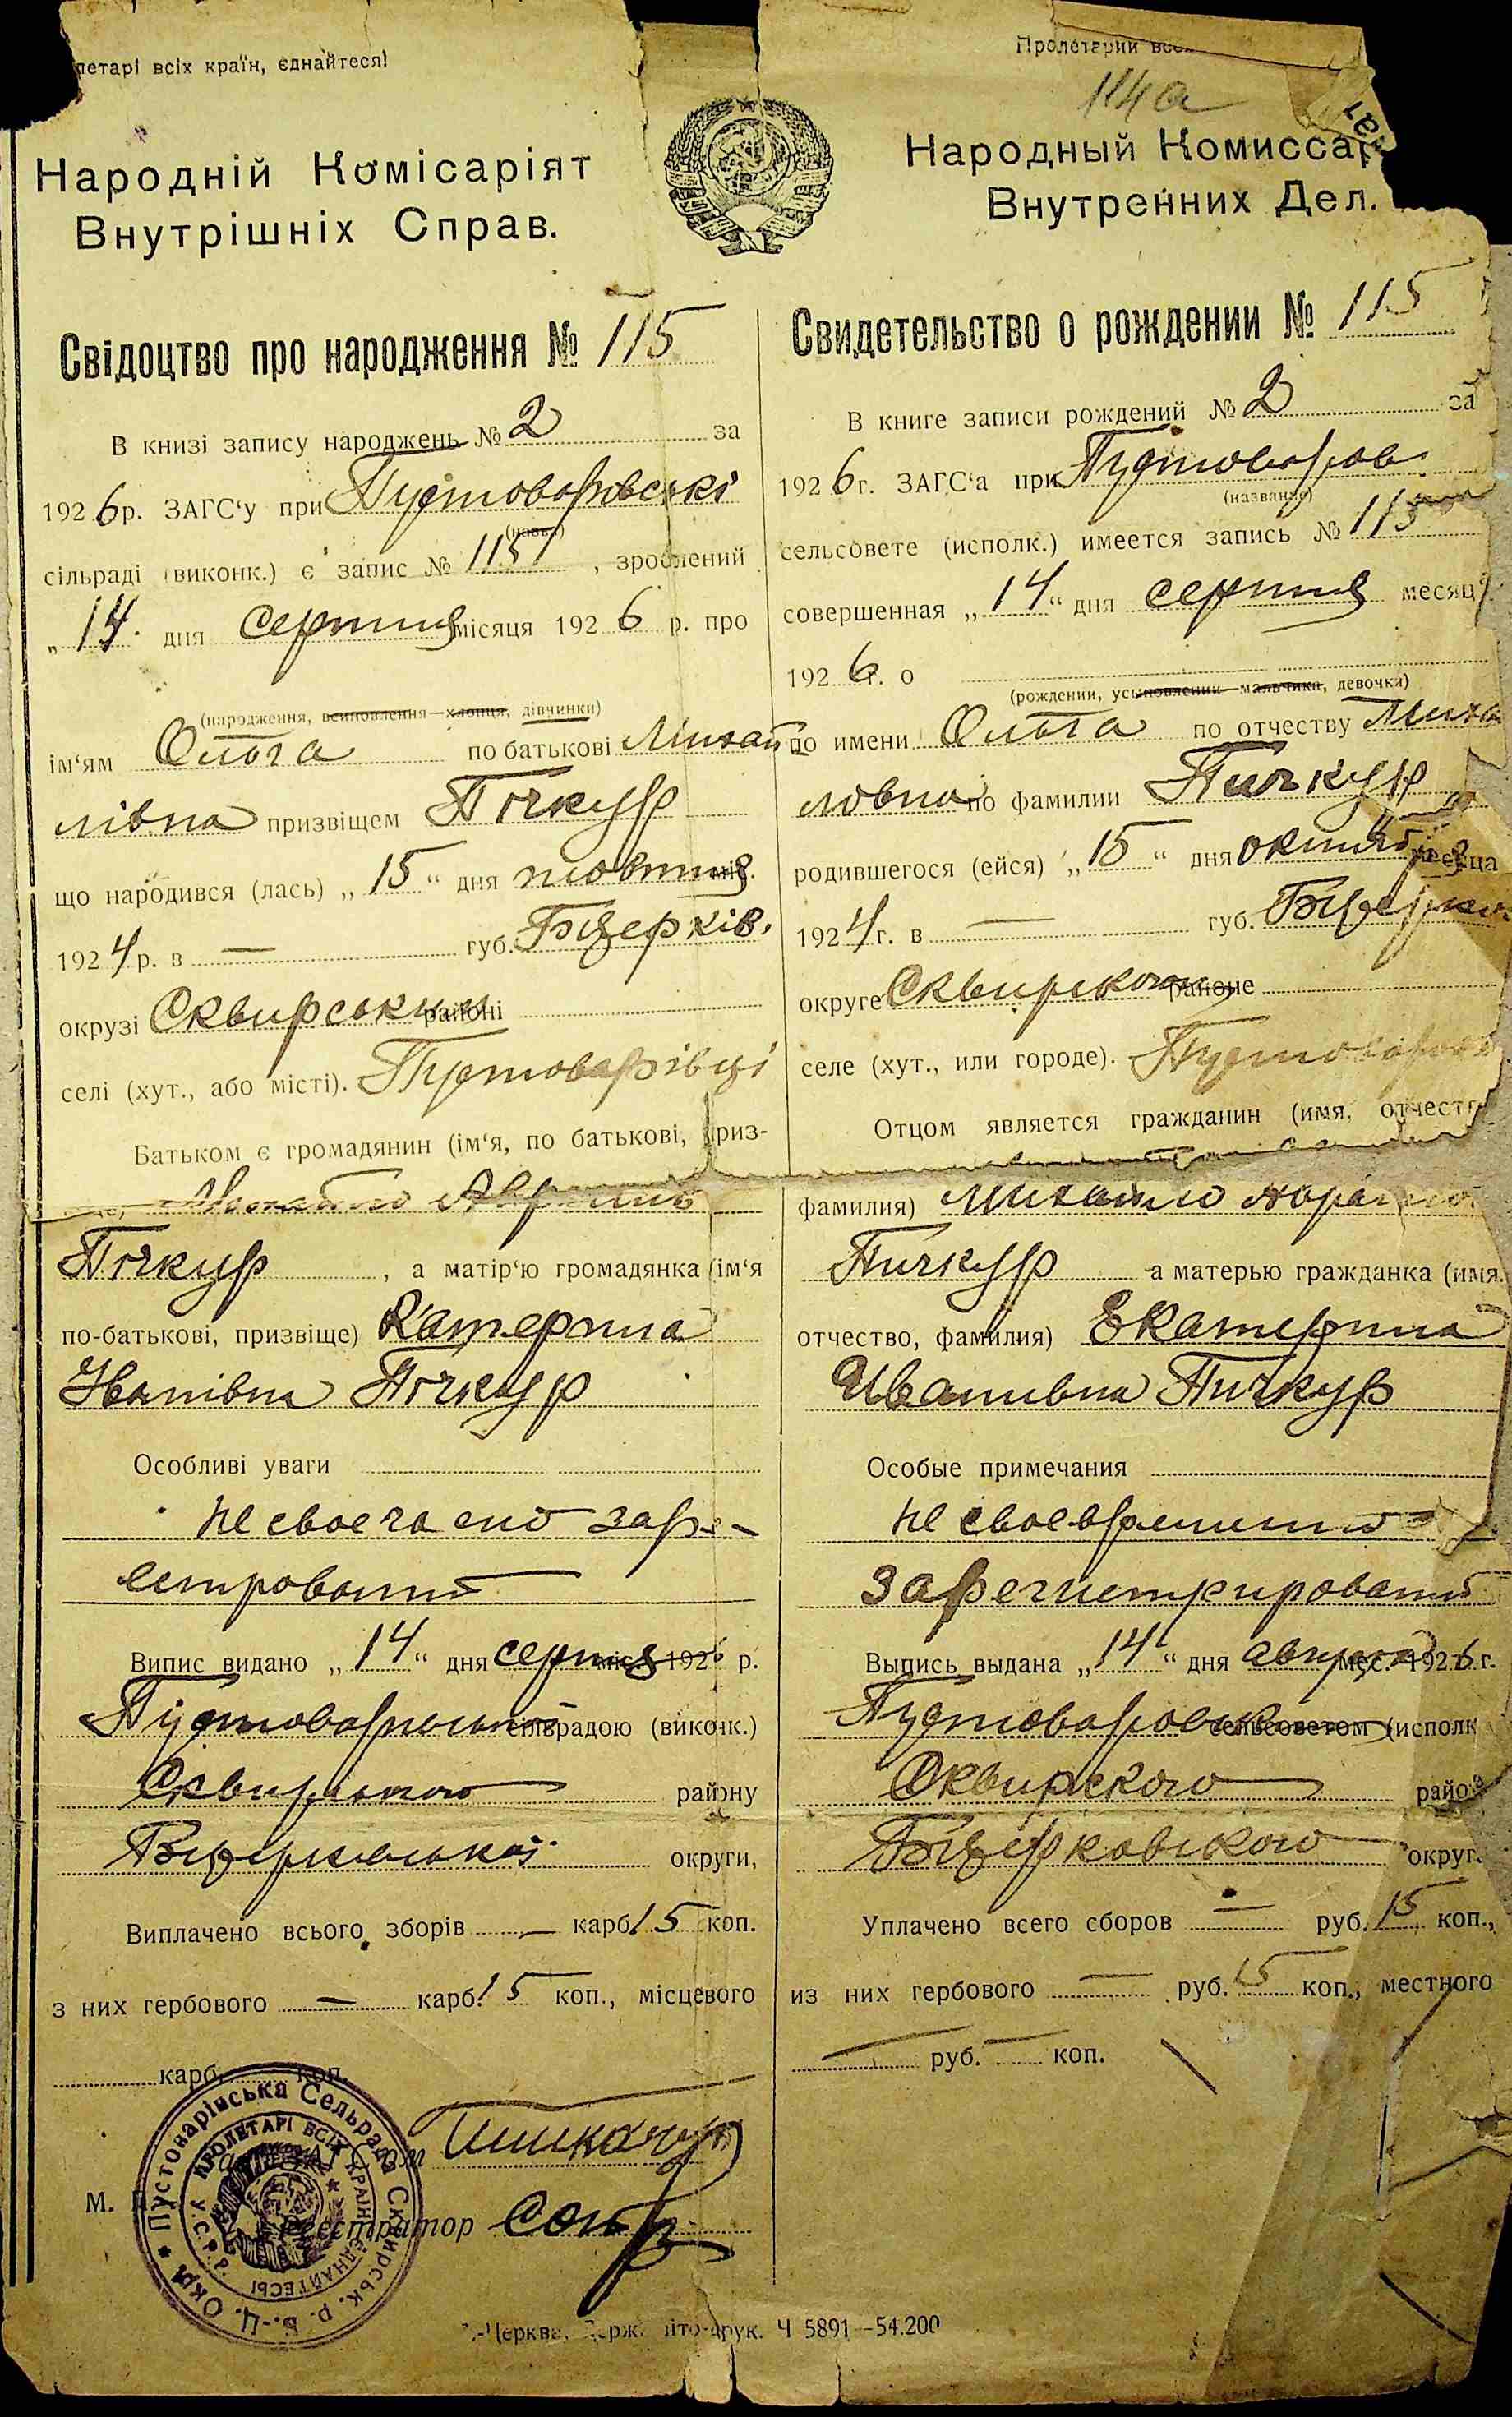 летарі всіх країн, єднайтеся!
Народній Комісаріят
Внутрішніх Справ.
Свідоцтво про народження № 115
В книзі запису народжень № 2 за
1926 р. ЗАГС‘у при Пустоварівські
(назва)
сільраді (виконк.) є запис № 115 , зроблений
„14“ дня серпня місяця 1926 р. про
(народження, всиновлення—хлопця, дівчинки)
ім‘ям Ольга по батькові Михай
лівна призвіщем Пічкур
що народився (лась) „15“ дня жовтня міс.
1924 р. в — губ. Бцерків.
окрузі Сквирським районі
селі (хут., або місті). Пустоварівці
Батьком є громадянин (ім‘я, по батькові, приз-
Михайло
Пічкур , а матір‘ю громадянка (ім‘я
по-батькові, призвіще) Катерина
Іванівна Пічкур
Особливі уваги
не своечасно заре-
естрований
Випис видано „14“ дня серпня міс. 1926 р.
сільрадою (виконк.)
Сквирського району
Бцерківської округи,
Виплачено всього зборів — карб. 15 коп.
з них гербового — карб. 15 коп., місцевого
карб. коп.
М. П.
Реєстратор
Пустоварівська Сельрада Сквирськ. р. Б.-Ц. Окр.
ПРОЛЕТАРІ ВСІХ КРАЇН ЄДНАЙТЕСЬ
У.С.Р.Р.
Пролетарии все
114а
Народный Комиссар
Внутренних Дел.
Свидетельство о рождении № 115
В книге записи рождений № 2 за
1926 г. ЗАГС‘а при Пустоваров
(название)
сельсовете (исполк.) имеется запись № 115
совершенная „14“ дня серпня месяца
1926 г. о
(рождении, усыновлении—мальчика, девочки)
по имени Ольга по отчеству Миха
ловна по фамилии Пичкур
родившегося (ейся) „15“ дня октяб месяца
1924 г. в — губ. Бцерков
округе Сквирском районе
селе (хут., или городе). Пустоваров
Отцом является гражданин (имя, отчество
фамилия) Михаило
Пичкур а матерью гражданка (имя,
отчество, фамилия) Екатерина
Ивановна Пичкур
Особые примечания
не своевременно
зарегистрированный
Выпись выдана „14“ дня августа мес. 1926 г.
Пустоваровск сельсоветом (исполк
Сквирского район
Бцерковского округ.
Уплачено всего сборов — руб. 15 коп.,
из них гербового — руб. 15 коп., местного
— руб. — коп.
Б.-Церква, Держ. літо-друк. Ч 5891—54.200